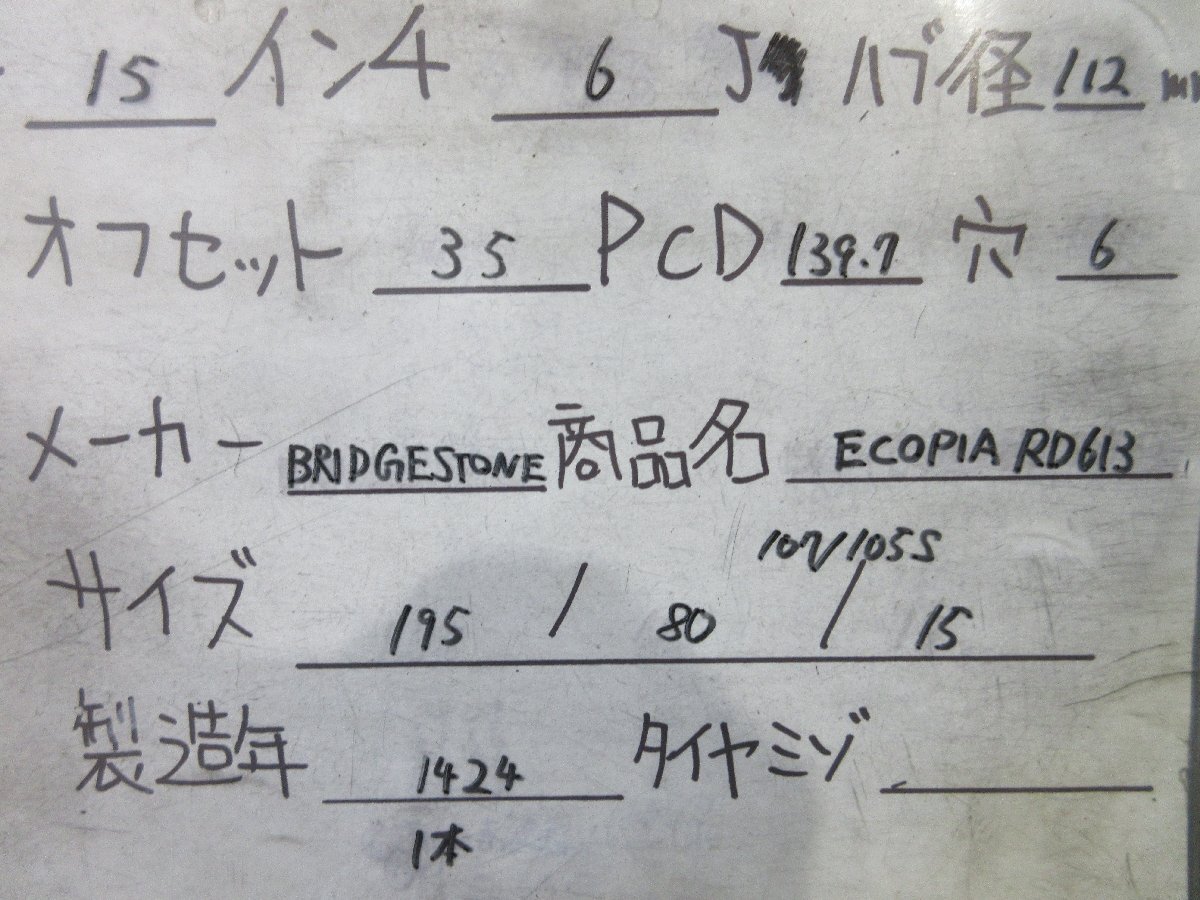 15 インチ 6 J ハブ径 112 mm
オフセット 35 PCD 139.7 穴 6
メーカー BRIDGESTONE 商品名 ECOPIA RD613
107/105S
サイズ 195 / 80 / 15
製造年 1424 タイヤミゾ
1本